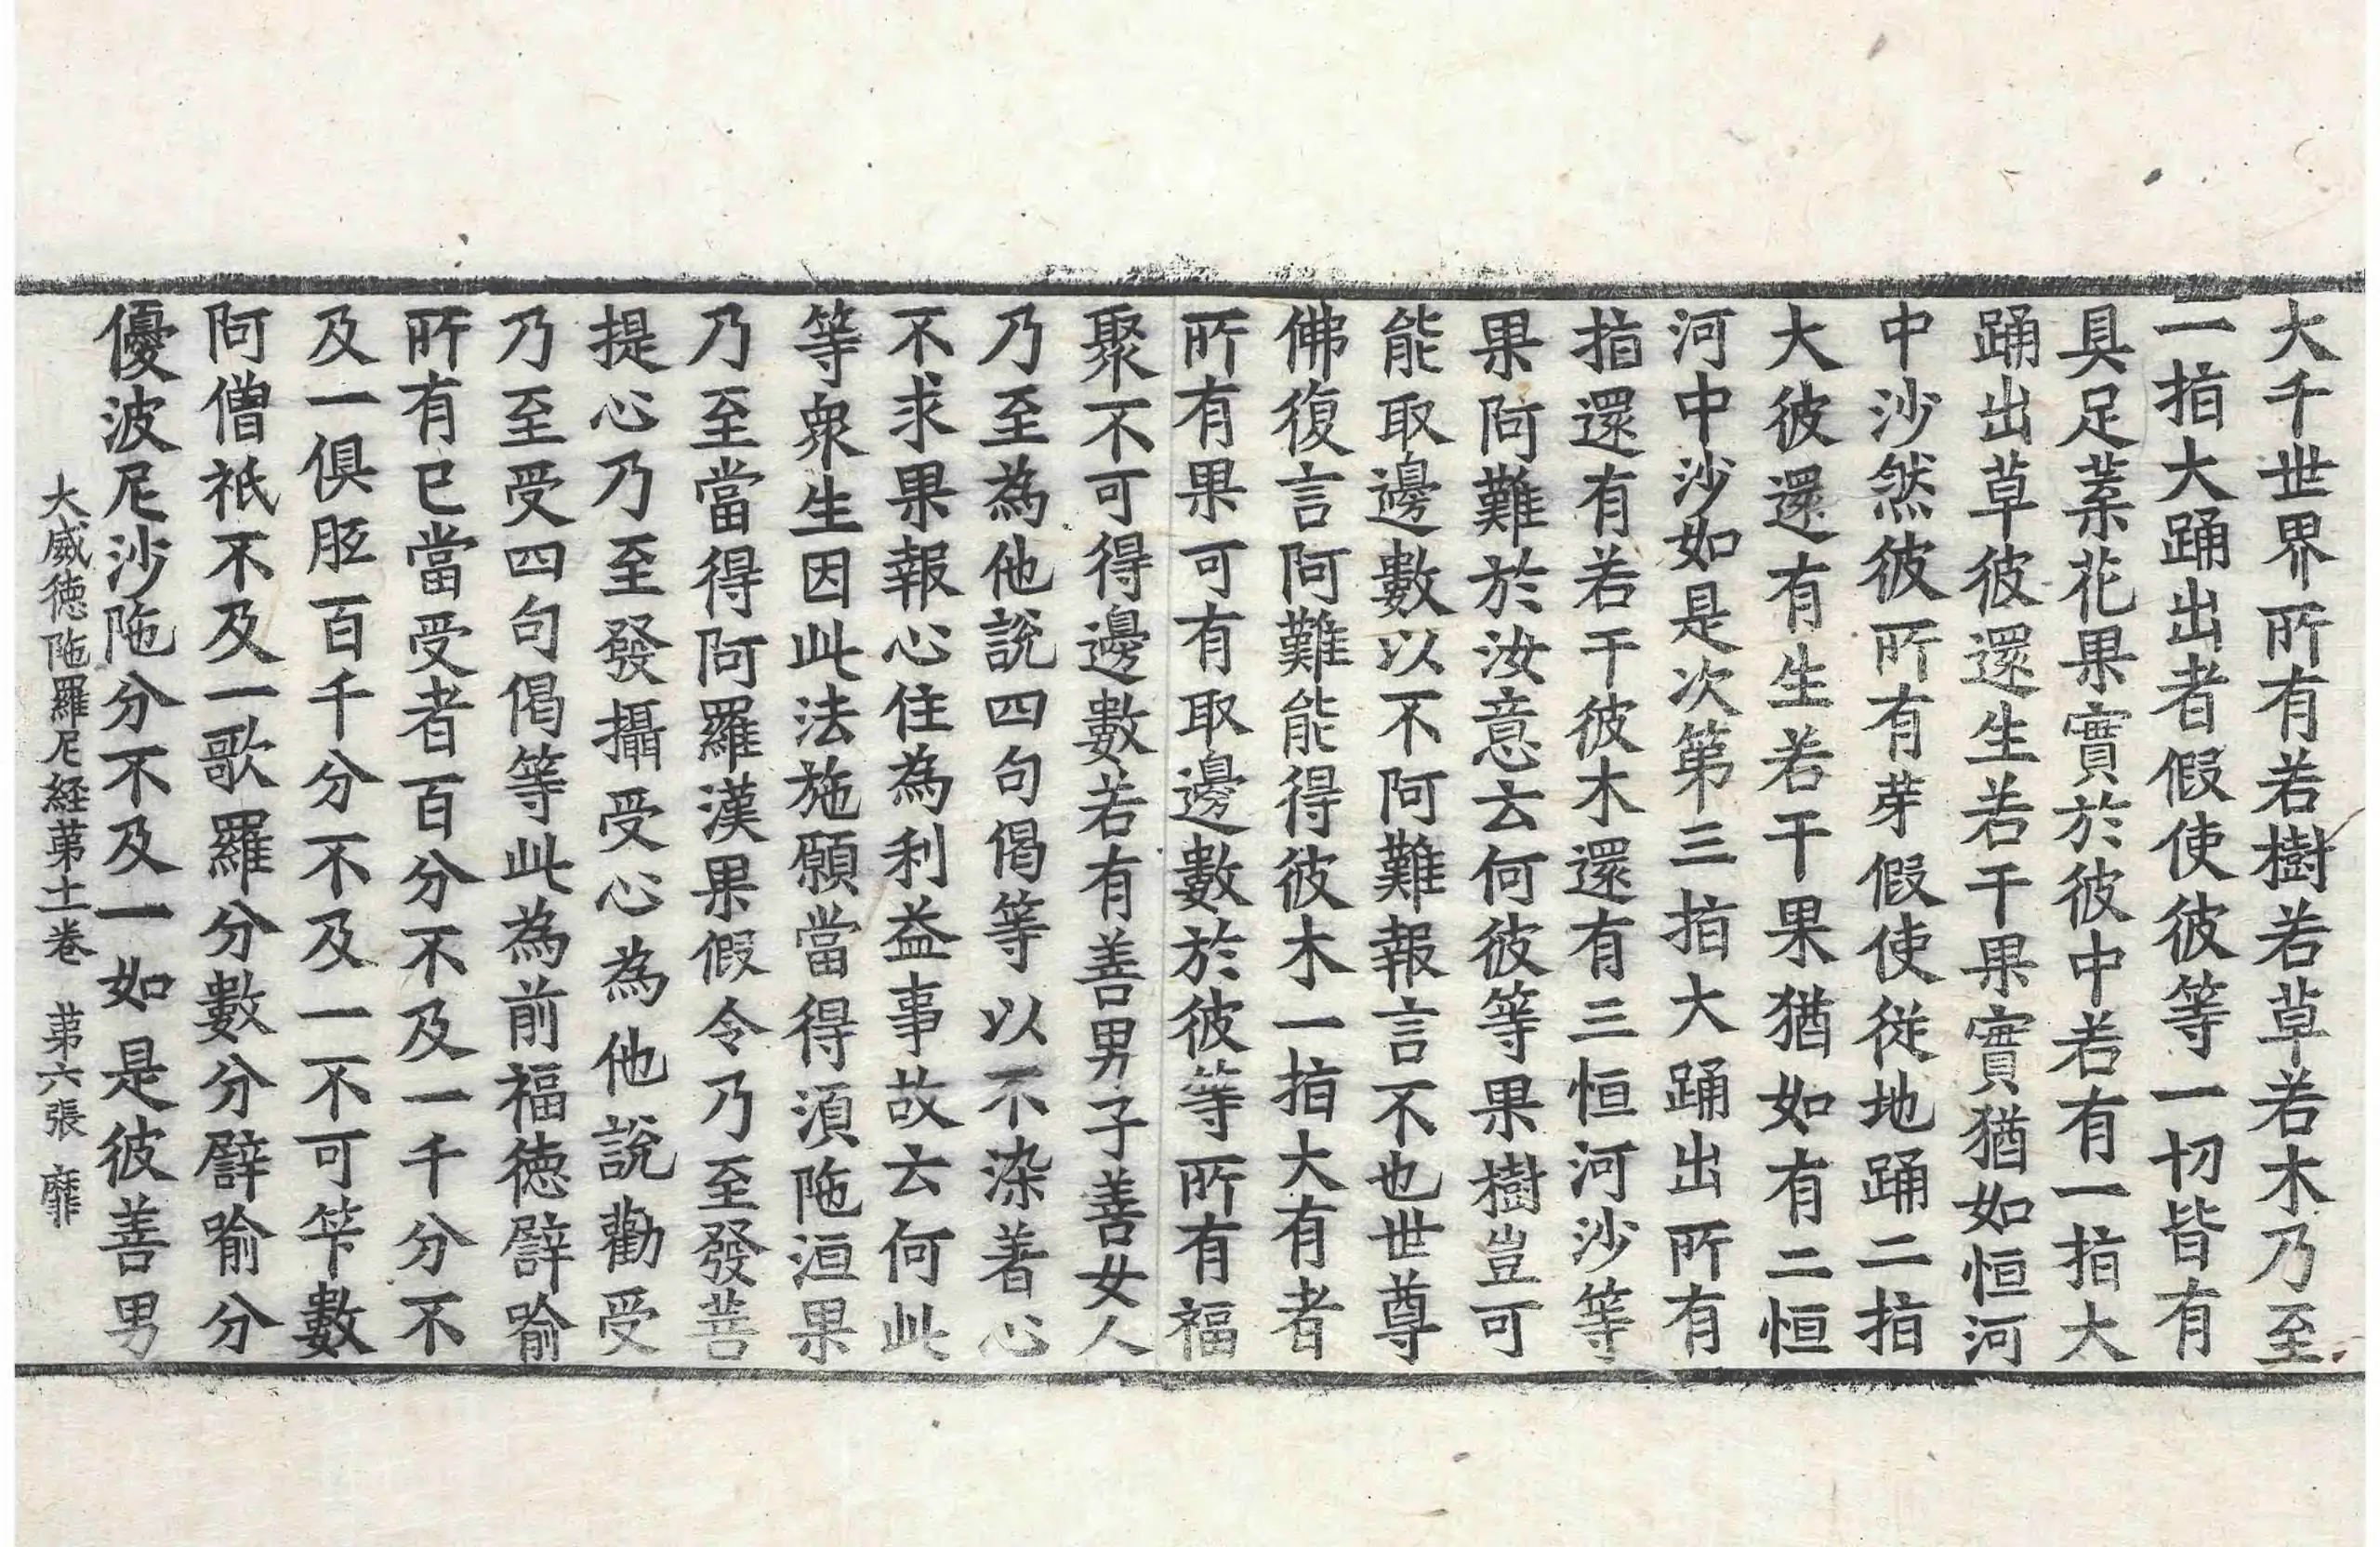 大千世界所有若樹若草若木乃至
一指大踊出者假使彼等一切皆有
具足葉花果實於彼中若有一指大
踊出草彼還生若干果實猶如恒河
中沙然彼所有芽假使従地踊二指
大彼還有生若干果猶如有二恒
河中沙如是次第三指大踊出所有
指還有若干彼木還有三恒河沙等
果阿難於汝意云何彼等果樹豈可
能取邊數以不阿難報言不也世尊
佛復言阿難能得彼木一指大有者
所有果可有取邊數於彼等所有福
聚不可得邊數若有善男子善女人
乃至為他說四句偈等以不染著心
不求果報心住為利益事故云何此
等衆生因此法施願當得湏陁洹果
乃至當得阿羅漢果假令乃至發菩
提心乃至發攝受心為他說勸受
乃至受四句偈等此為前福徳譬喻
所有已當受者百分不及一千分不
及一俱胝百千分不及一不可笇數
阿僧祇不及一歌羅分數分譬喻分
優波尼沙陁分不及一如是彼善男
大威徳陁羅尼経第十一卷 第六張 靡